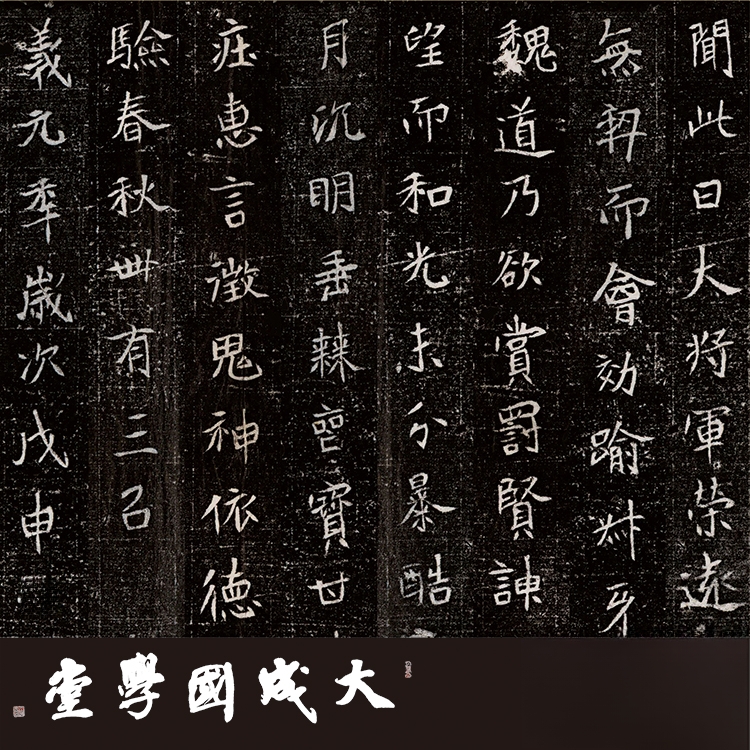 聞此日大將軍榮遠
無契而會効踰牙
魏道乃欲賞罰賢諫
望而和光未分暴酷
月沉明垂棘喪寶甘
惠言徵鬼神依德
驗春秋卌有三
義元年歲次戊申
大成國學堂